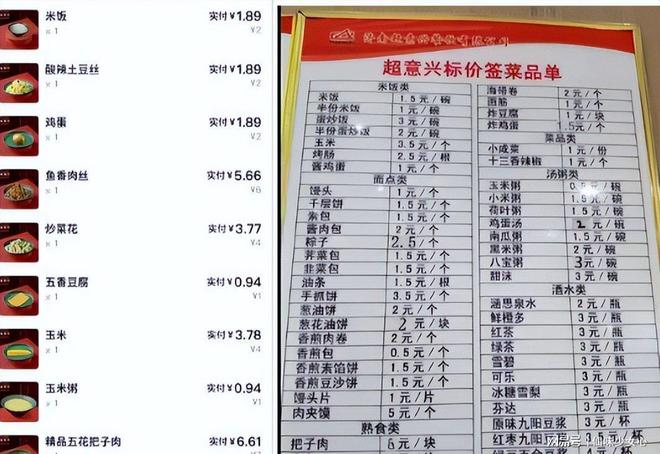 米饭
x 1
实付￥1.89
￥2
酸辣土豆丝
x 1
实付￥1.89
￥2
鸡蛋
x 1
实付￥1.89
￥2
鱼香肉丝
x 1
实付￥5.66
￥6
炒菜花
x 1
实付￥3.77
￥4
五香豆腐
x 1
实付￥0.94
￥1
玉米
x 1
实付￥3.78
￥4
玉米粥
x 1
实付￥0.94
￥1
精品五花把子肉
实付￥6.61
济南超意兴餐饮有限公司
超意兴标价签菜品单
米饭类
米饭 1.5元/碗
半份米饭 1元/碗
蛋炒饭 3元/碗
半份蛋炒饭 2元/碗
玉米 3.5元/个
烤肠 2.5元/根
酱鸡蛋 1元/个
面点类
馒头 1元/个
千层饼 1.5元/个
素包 1.5元/个
酱肉包 2元/个
粽子 2.5/个
荠菜包 1.5元/个
韭菜包 1.5元/个
油条 1.5元/根
手抓饼 3.5元/个
葱油饼 2元/个
葱花油饼 2元/块
香煎肉卷 2元/个
香煎包 0.5元/个
香煎素馅饼 1.5元/个
香煎豆沙饼 1.5元/个
馒头片 1元/片
肉夹馍 5元/个
熟食类
把子肉 6元/块
海带卷 2元/个
面筋 1元/个
炸豆腐 1元/块
炸鸡蛋 1.5元/个
菜品类
小咸菜 1元/份
十三香辣椒 1元/个
汤粥类
玉米粥
元/碗
小米粥 1.5元/碗
荷叶粥 1.5元/碗
鸡蛋汤 2元/碗
南瓜粥 1.5元/碗
黑米粥 2元/碗
八宝粥 3元/碗
甜沫 3元/碗
酒水类
涵思泉水 2元/瓶
鲜橙多 3元/瓶
红茶 3元/瓶
绿茶 3元/瓶
雪碧 3元/瓶
可乐 3元/瓶
冰糖雪梨 3元/瓶
芬达 3元/瓶
原味九阳豆浆 3元/杯
红枣九阳豆浆